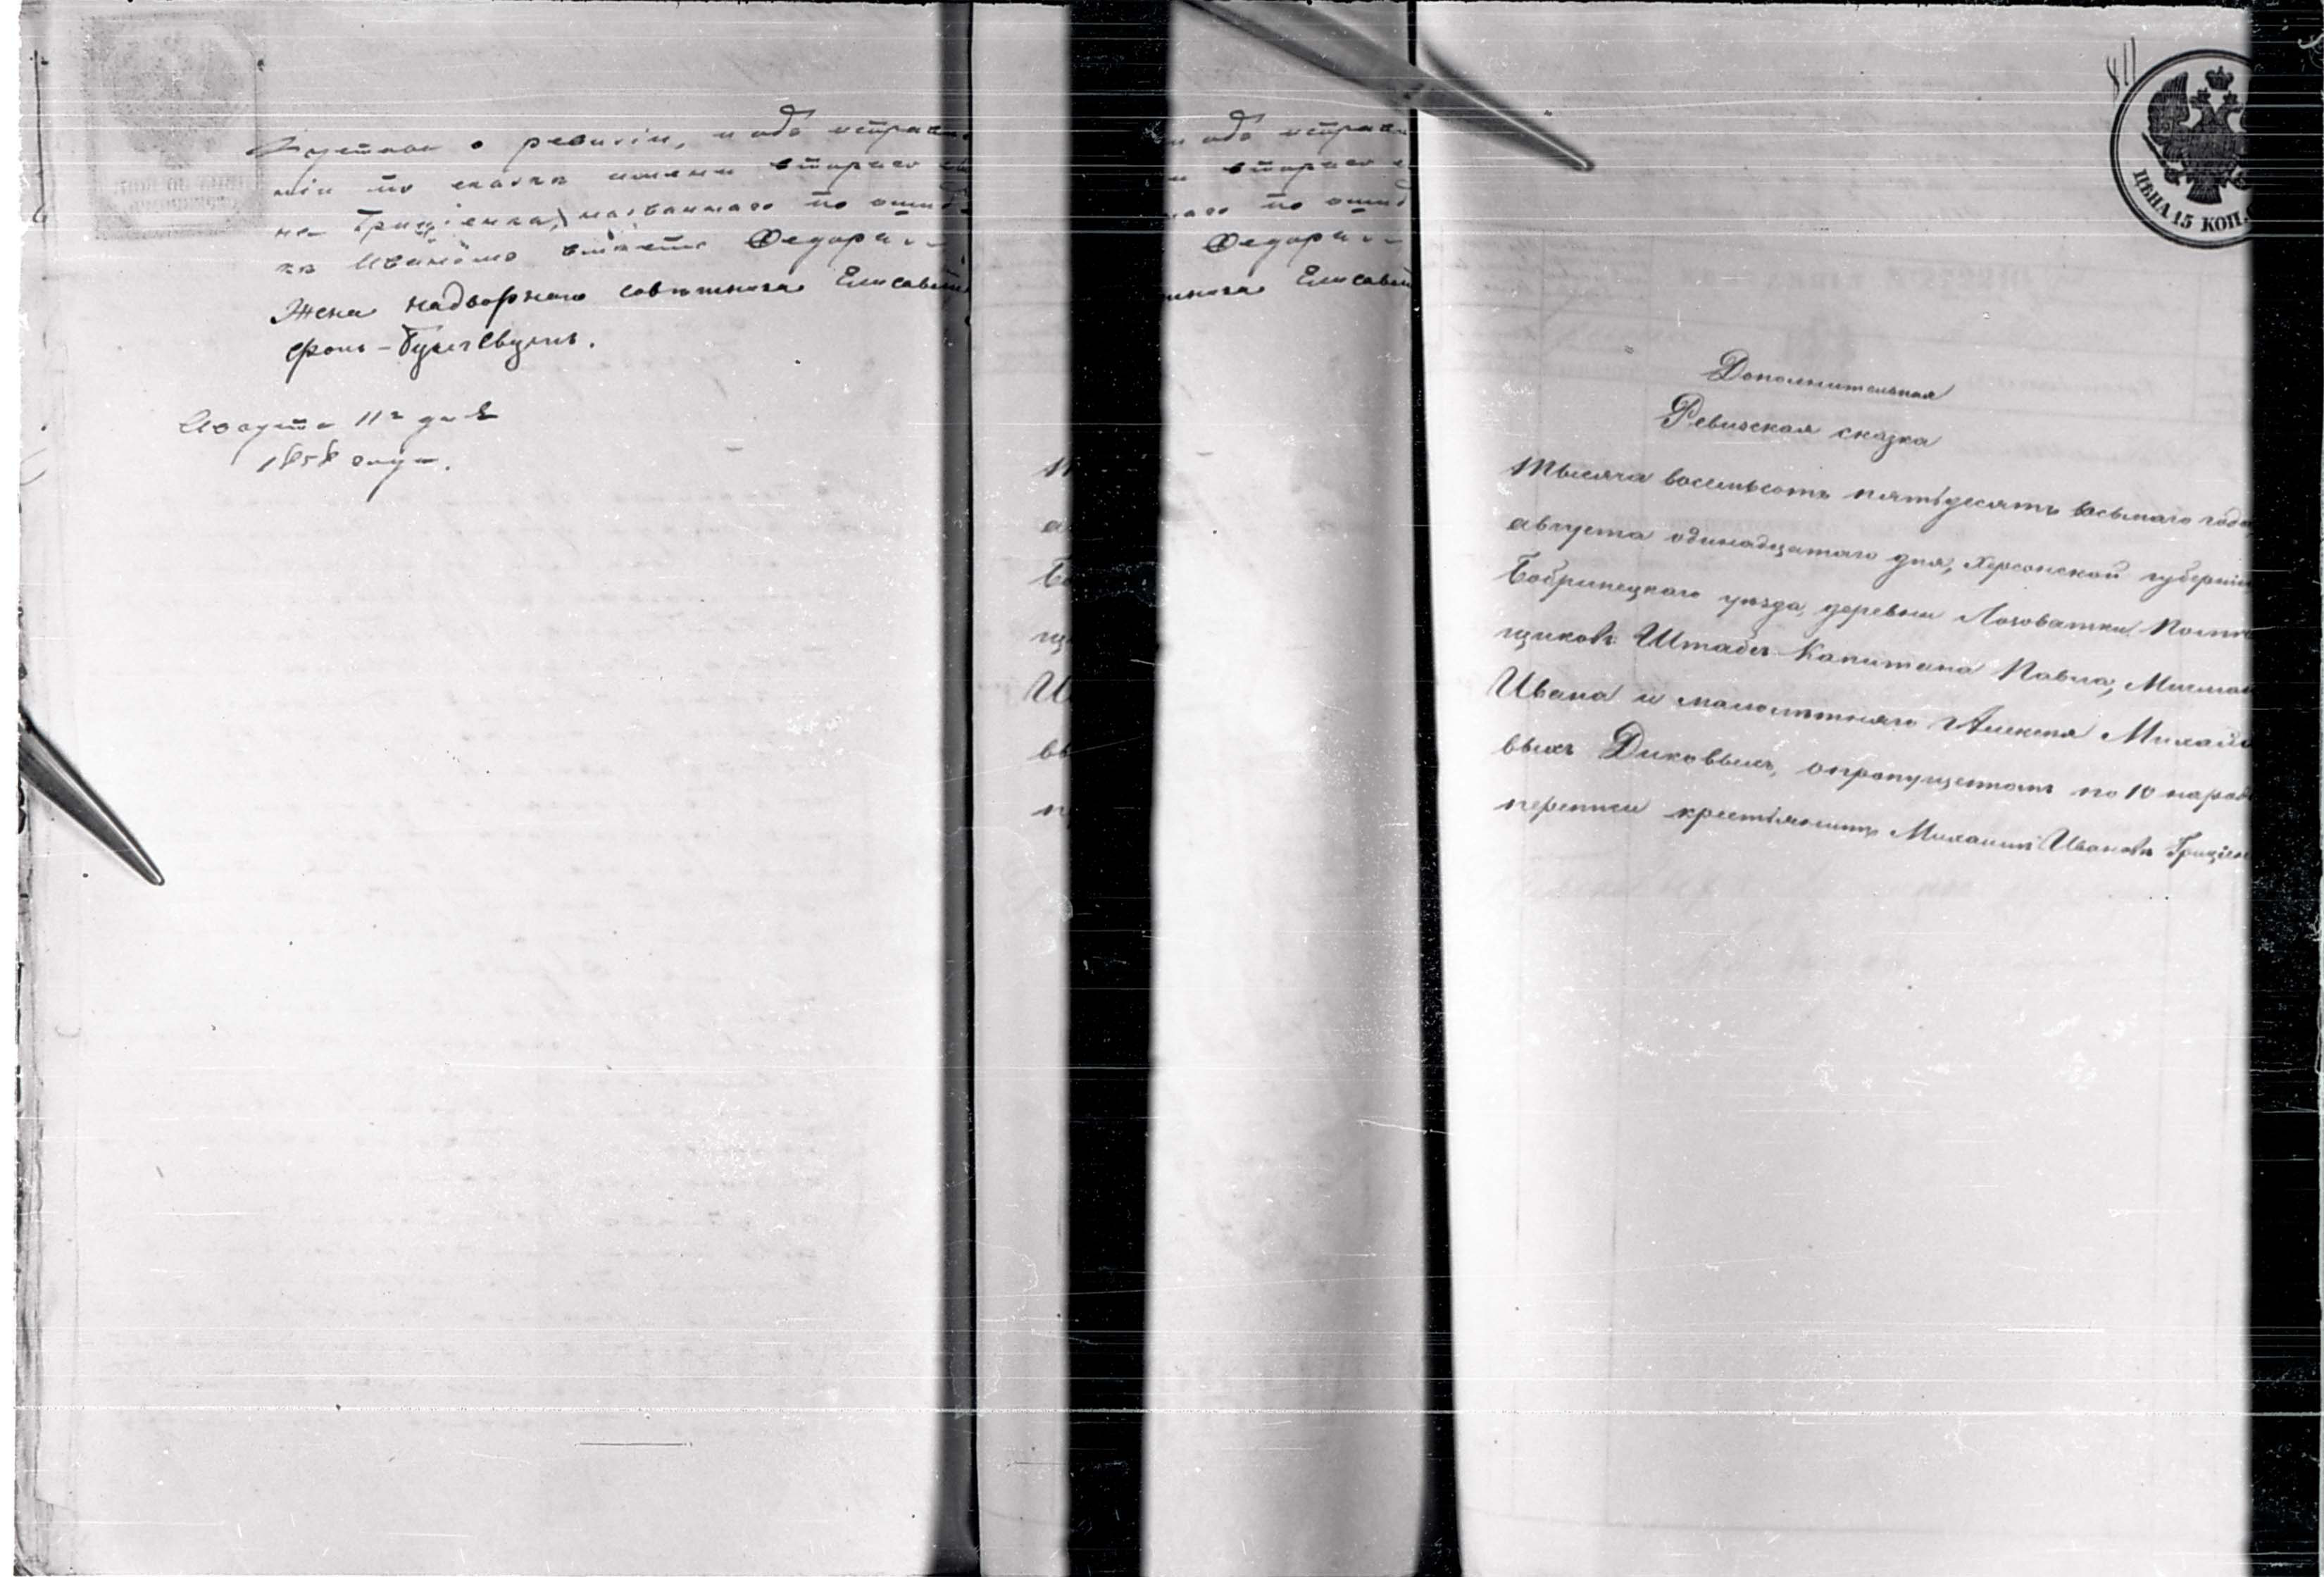 о ревизіи, и объ исправле
ніи по сказкѣ имени втораго сы
на Гриціенка, названнаго по ошиб
кѣ Иваномъ вмѣсто Федора
Жена надворнаго совѣтника Елисавет
фонъ-
Августа 11го дня
1858 года.
и объ исправл
втораго
наго по ошиб
Федора
тника Елисавет
811
ЦѢНА 15 КОП. С
Дополнительная
Ревизская сказка
Тысяча восемьсотъ пятьдесятъ восьмаго года,
августа одинадцатаго дня, Херсонской губерніи
Бобринецкаго уѣзда, деревни Лозоватки Помѣ
щиковъ Штабсъ Капитана Павла, Мичман
Ивана и малолѣтняго Алексѣя Михайл
выхъ Диковыхъ, о пропущенномъ по 10 народ
переписи крестьянинѣ Михаилѣ Ивановѣ Гриціен